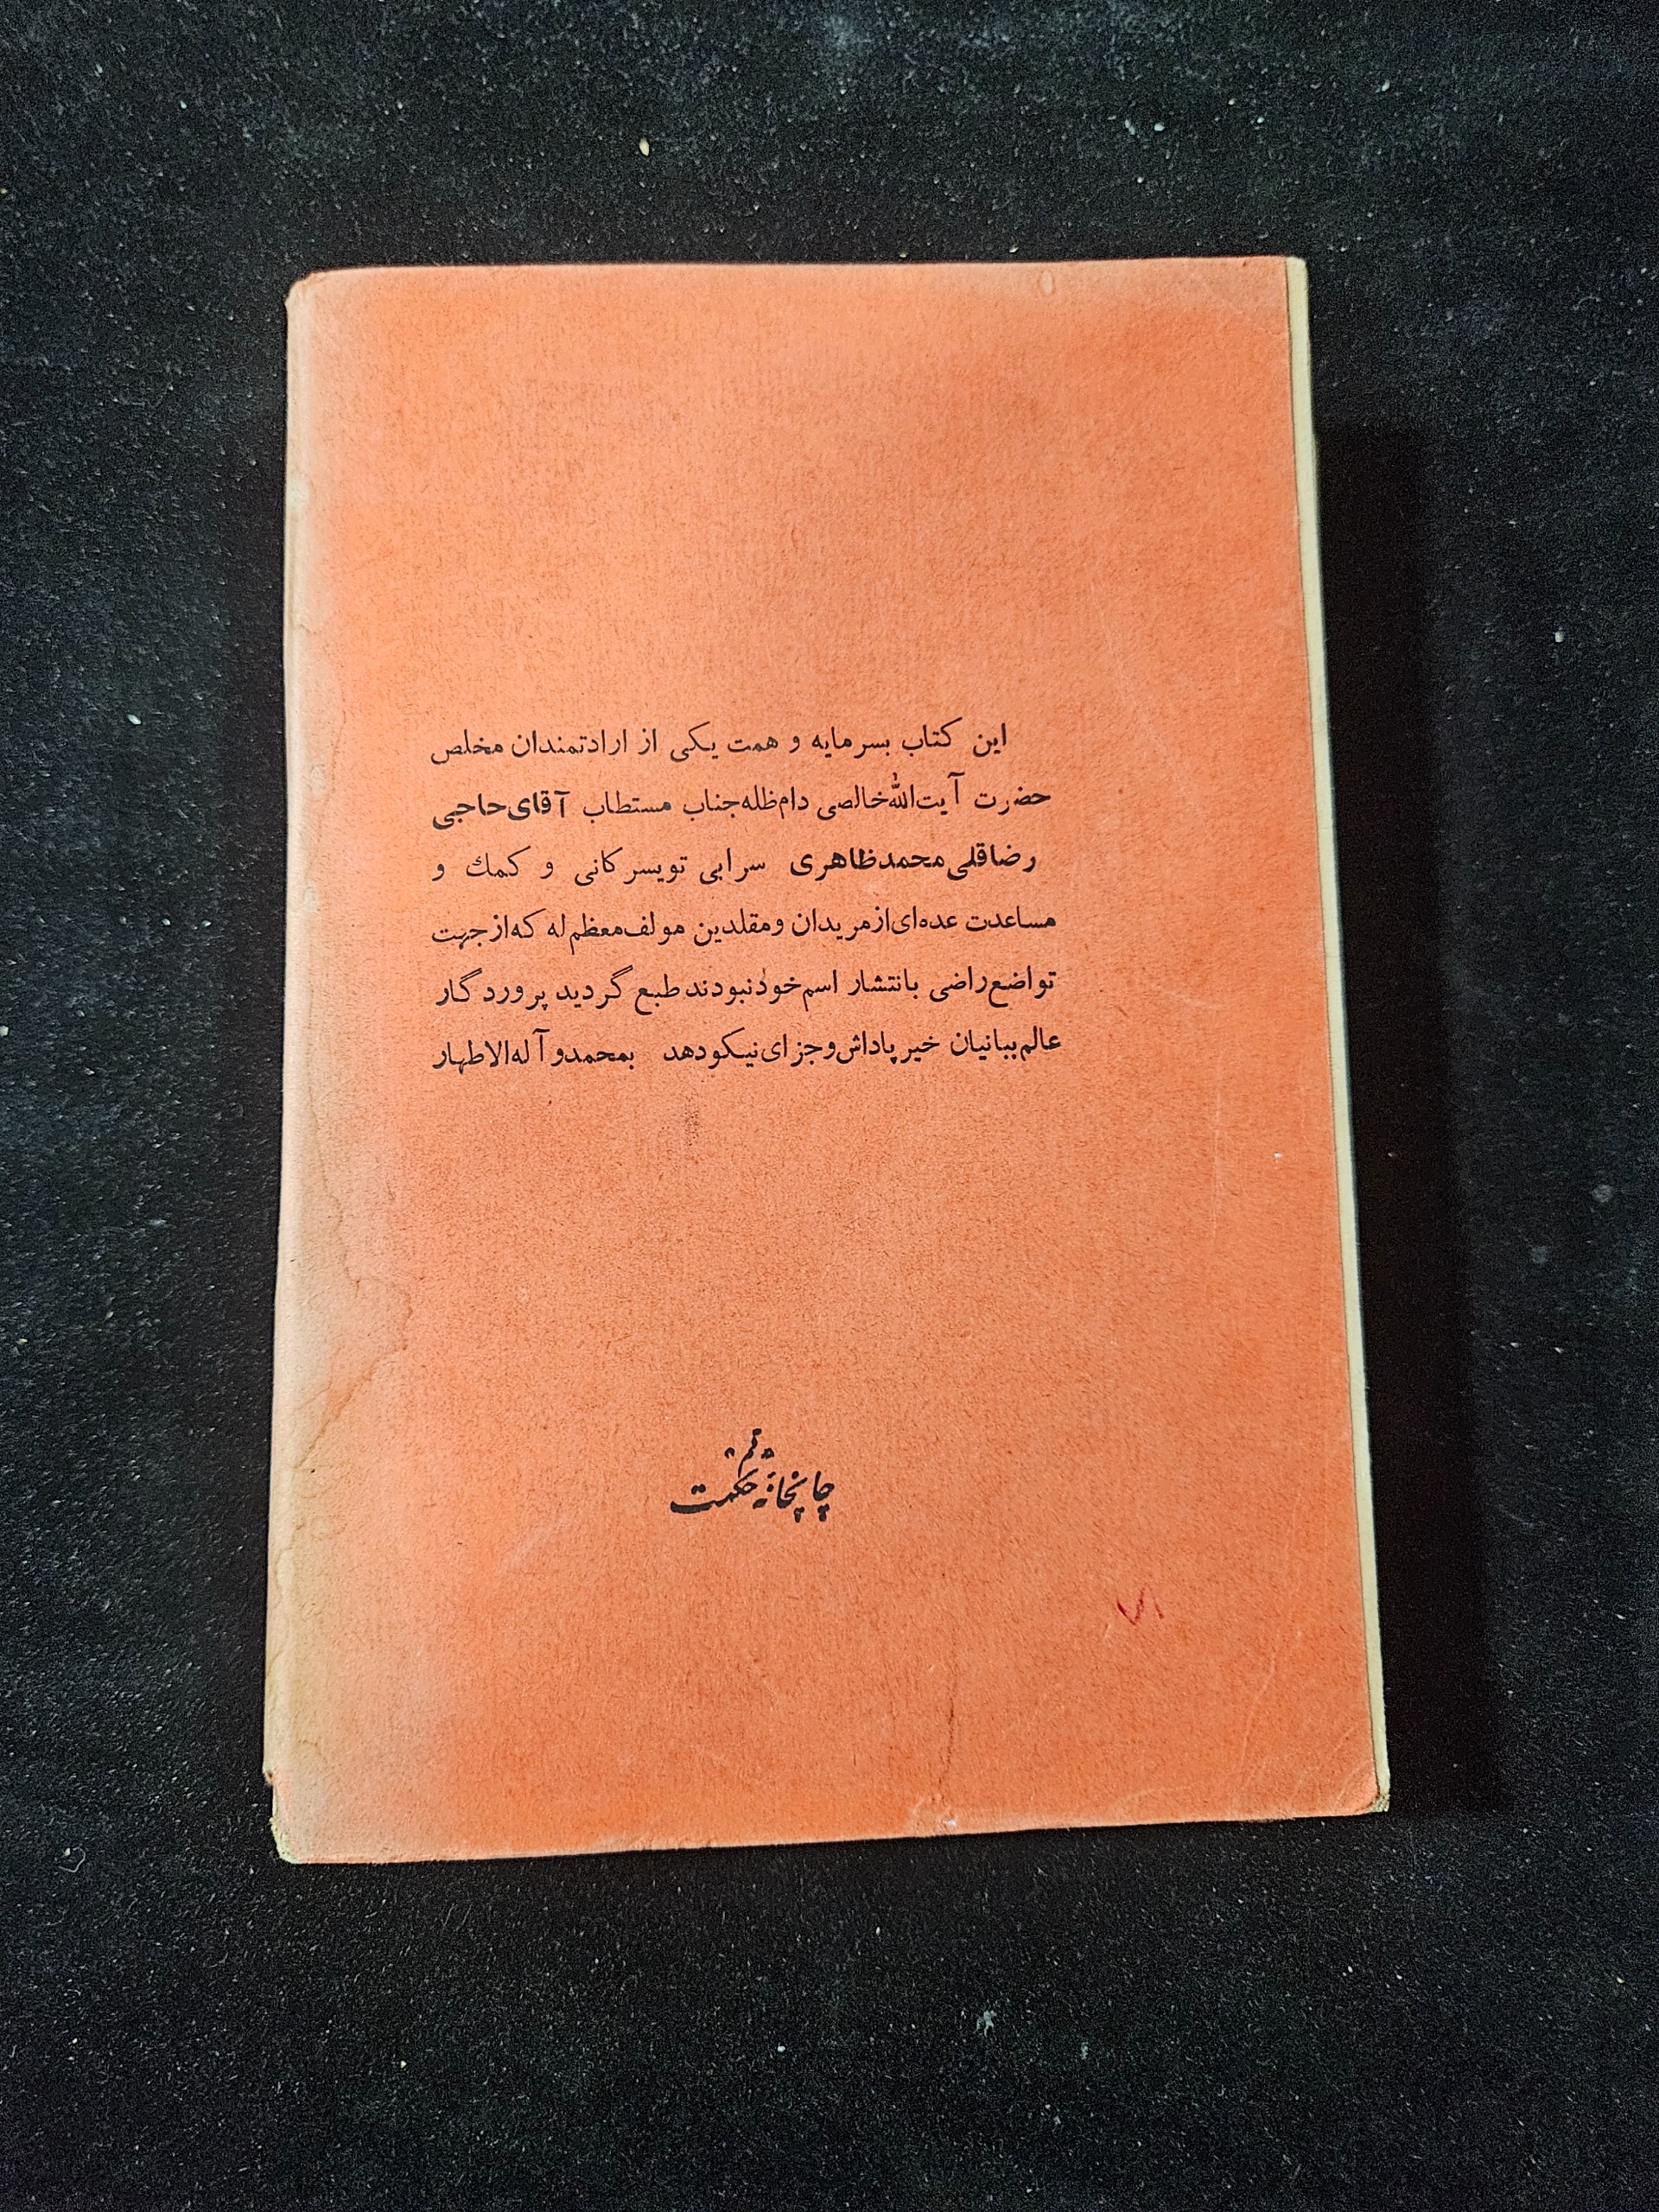 این کتاب بسرمایه و همت یکی از ارادتمندان مخلص
حضرت آیت‌الله خالصی دام ظله جناب مستطاب آقای حاجی
رضاقلی محمد ظاهری سرابی تویسرکانی و کمك و
مساعدت عده‌ای از مریدان و مقلدین مولف معظم له که از جهت
تواضع راضی بانتشار اسم خود نبودند طبع گردید پروردگار
عالم ببانیان خیر پاداش و جزای نیکو دهد بمحمد و آله الاطهار
قم
چاپخانه حکمت
۷۱